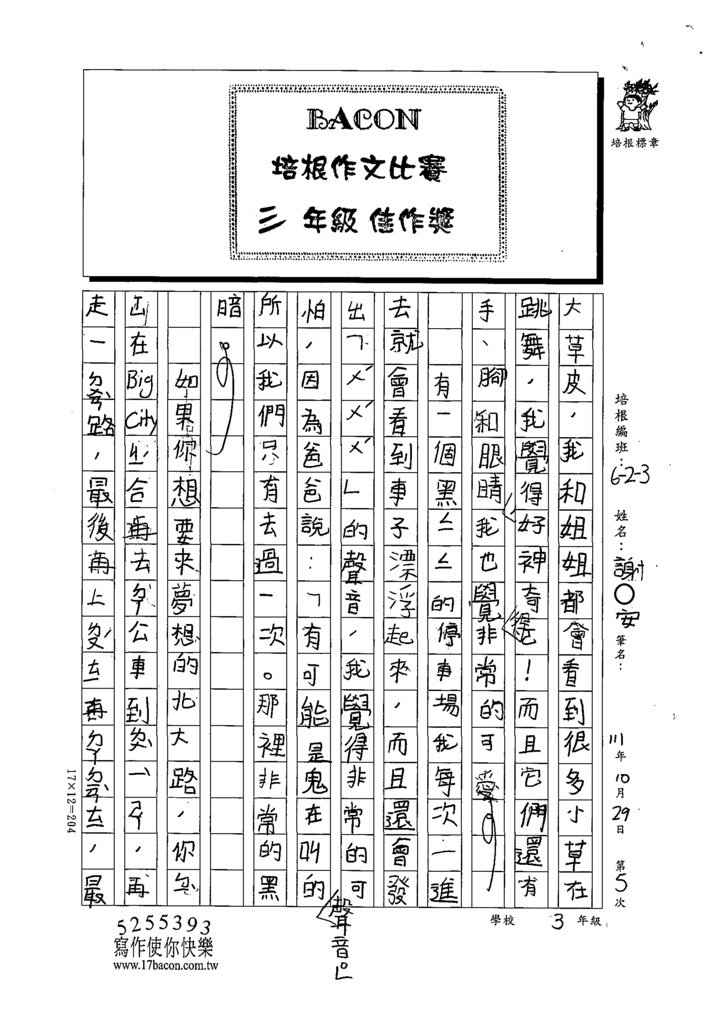 BACON
培根作文比賽
三年級佳作獎
培根標章
培根編班：6-2-3 姓名：謝○安 筆名： 111年10月29日 第5次
大草皮，我和姐姐都會看到很多小草在
跳舞，我覺得好神奇喔！而且它們還有
手、腳和眼睛，我也覺得非常的可愛。
有一個黑ㄙㄙ的停車場我每次一進
去就會看到車子漂浮起來，而且還會發
出「ㄨˊㄨˊㄨˊ」的聲音，我覺得非常的可
怕，因為爸爸說：「有可能是鬼在叫的聲音。」
所以我們只有去過一次。那裡非常的黑
暗。
如果你想要來夢想的北大路，你
在Big City 合 再去 公車到 再
走一 路，最後再上 再 ，最
17×12=204
5255393
寫作使你快樂
www.17bacon.com.tw
學校 3年級